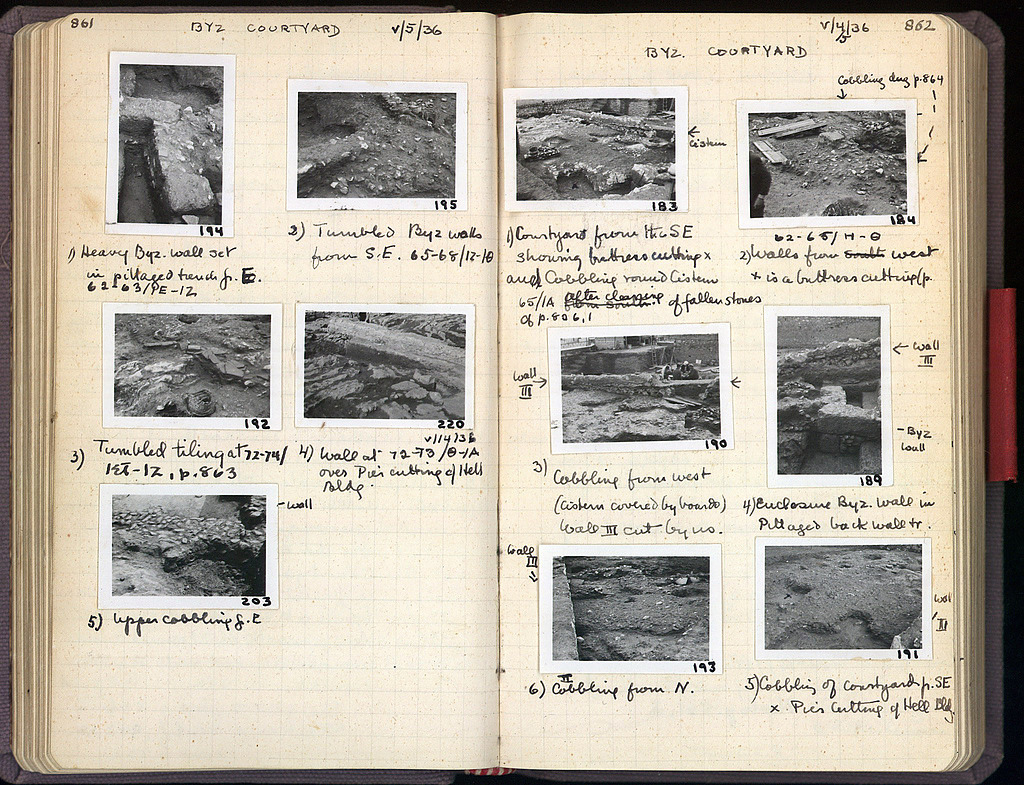 861
BYZ COURTYARD
V/5/36
194
195
1) Heavy Byz. wall set
in pillaged trench f. E.
62-63/ΡΕ-12
2) Tumbled Byz walls
from S.E. 65-68/12-10
192
220
V/14/36
3) Tumbled tiling at 72-74/
-12, p. 863
4) Wall at 72-73/Θ-ΙΑ
over Pier cutting of Hell
Bldg.
-wall
203
5) Upper cobbling f. E
V/4/36
5
862
BYZ. COURTYARD
Cobbling dug p. 864
Cistern
183
184
1) Courtyard from the SE
showing buttress cutting x
and Cobbling round Cistern
65/ΙΑ after clearing of fallen stones
of p. 806, 1
62-65/Η-Θ
2) Walls from south west
x is a buttress cutting (p.
Wall
III
190
Wall
III
-Byz
wall
189
3) Cobbling from west
(cistern covered by boards)
Wall III cut by us.
4) Enclosure Byz. wall in
Pillaged back wall tr.
Wall
III
193
Wall
II
191
6) Cobbling from N.
5) Cobbling of courtyard f. SE
x Pier Cutting of Hell Bldg.